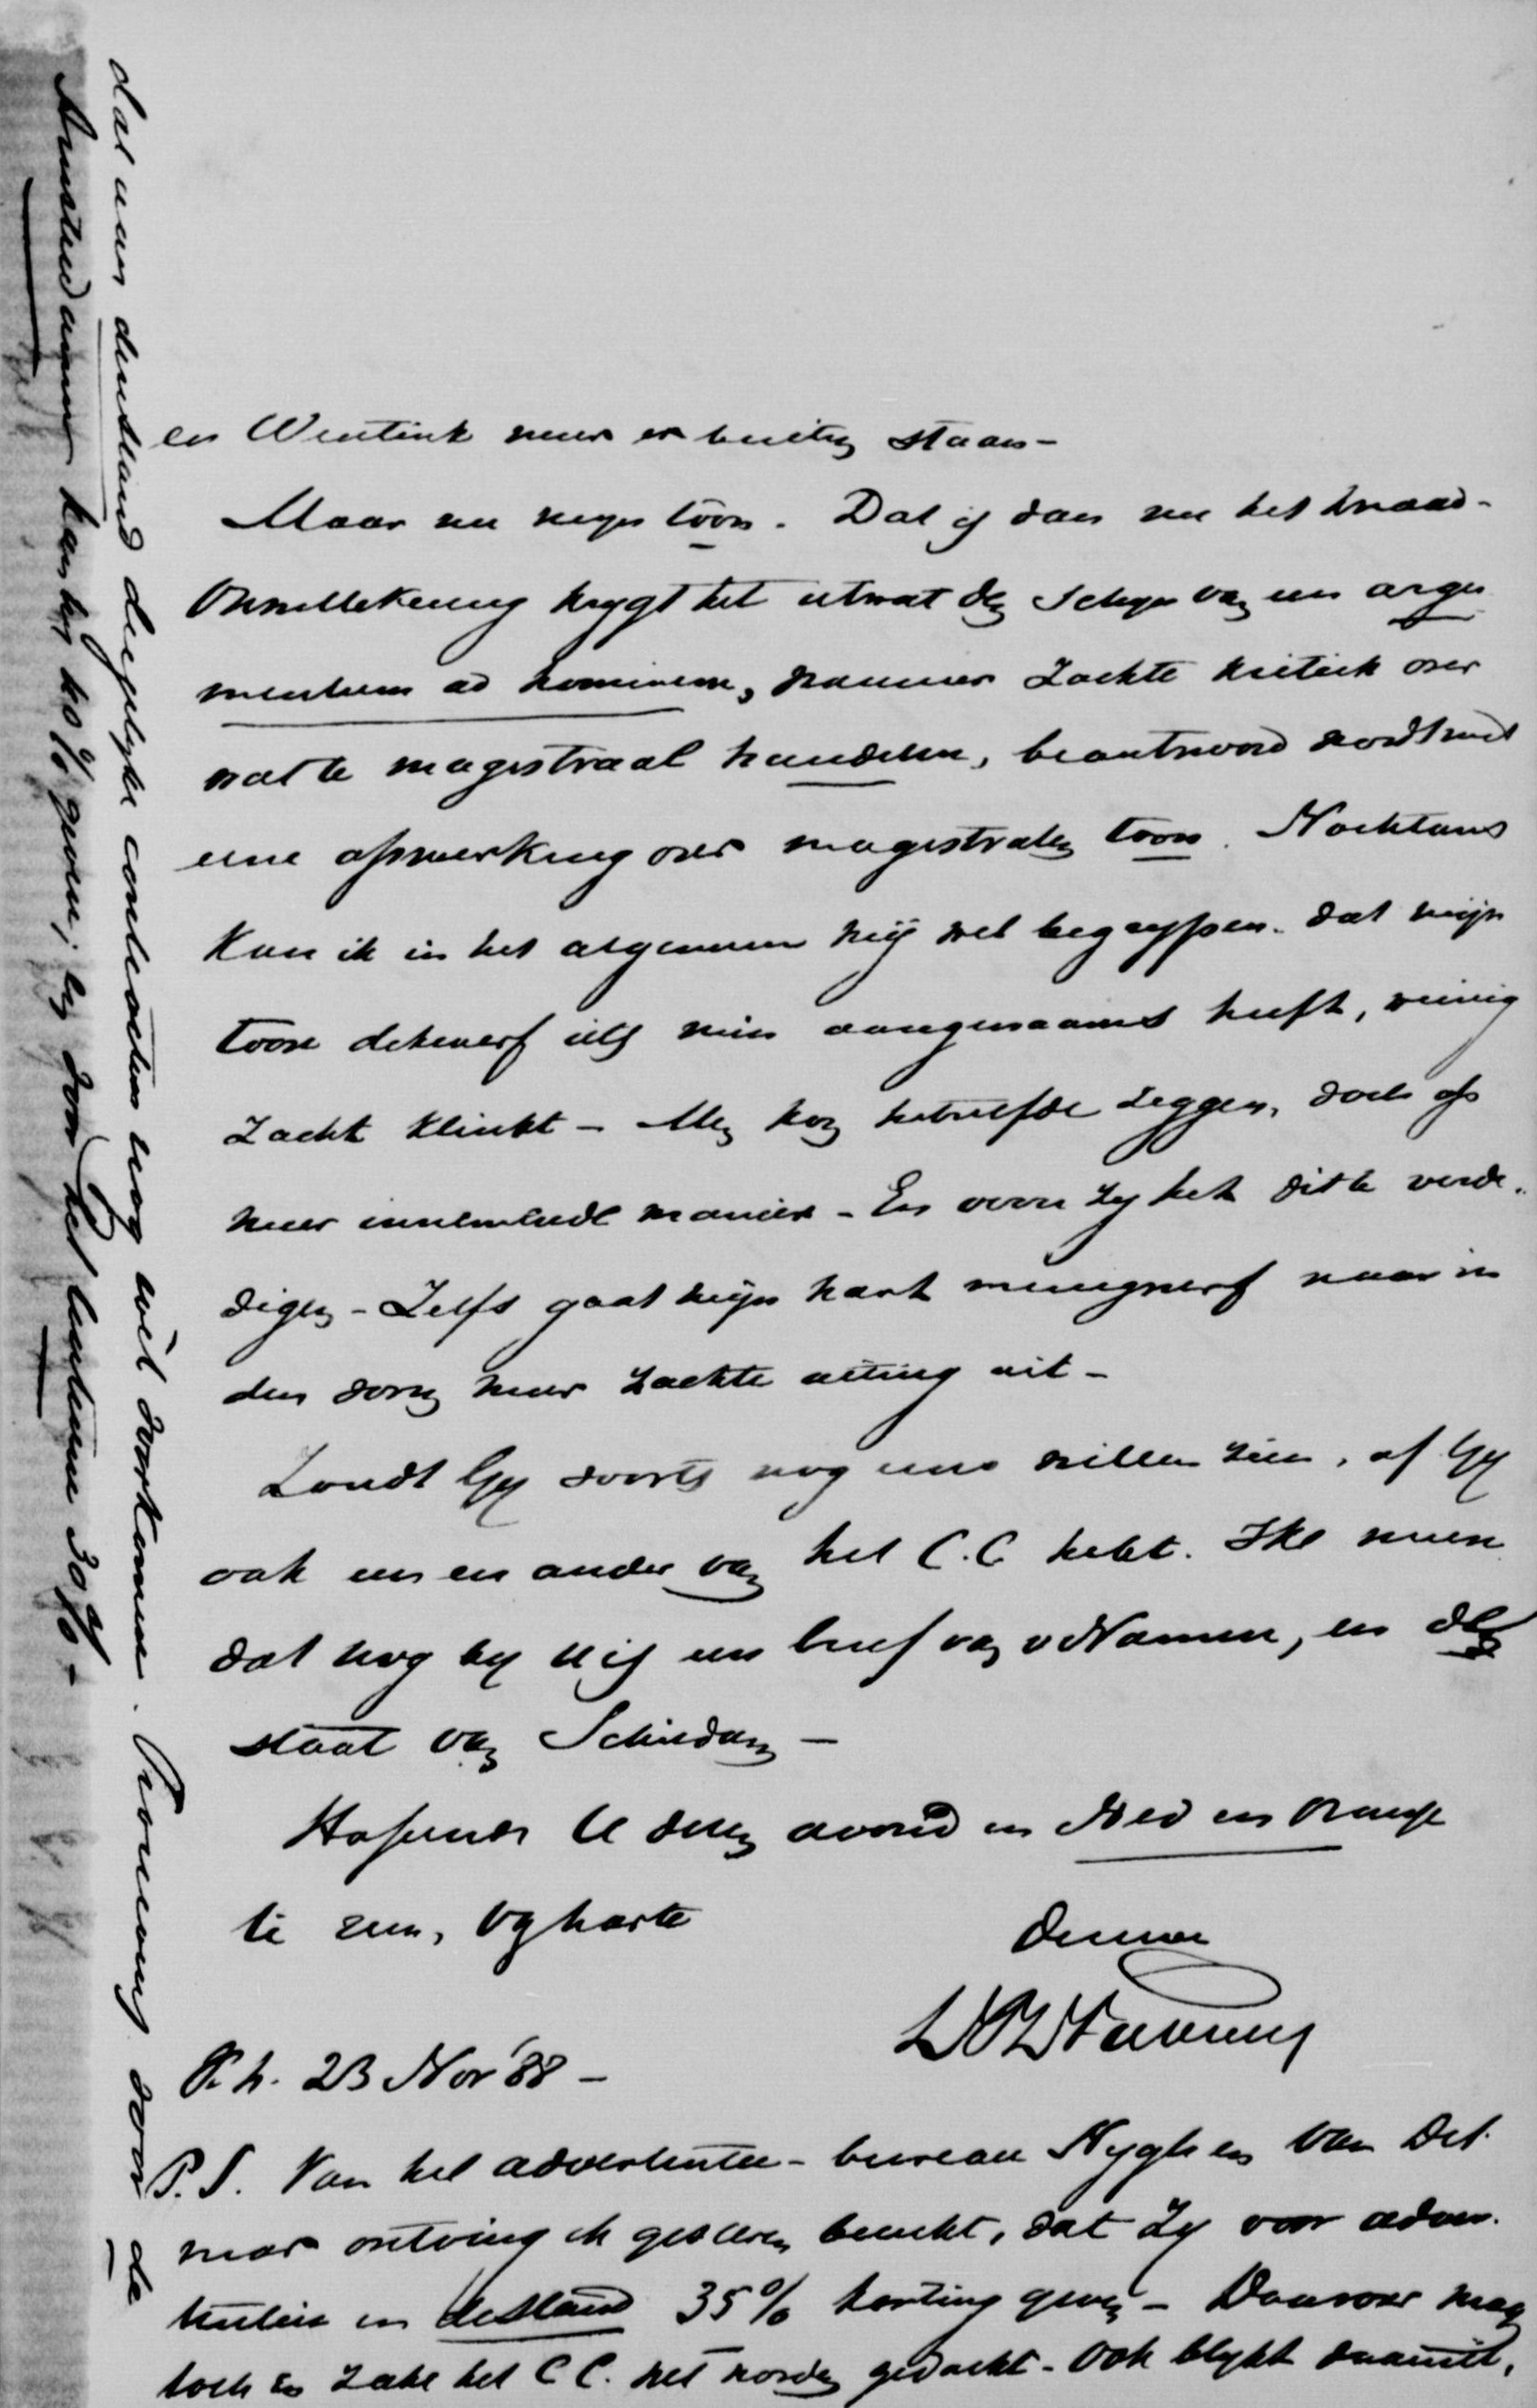 en Wentink meer er buiten staan -
Maar nu mijn toon. Dat is dan nu het kwaad -
Onwillekeurig krygt het ietwat den schyn van een argu
mentum ad hominem, wanneer zachte kritiek over
wat te magistraal handelen, beantwoord wordt met
eene opmerking over magistralen toon. Nochtans
Kan ik in het algemeen mij wel begrypen dat mijn
toon dikwerf iets min aangenaams heeft, weinig
zacht klinkt - Men kan hetzelfde zeggen, doch op
meer innemende manier - En verre zy het dit te verde-
digen - Zelfs gaat mijn hart menigwerf naar in
den vorm meer zachte uiting uit -
Zoudt Gy voorts nog eens willen zien, of Gy
ook een en ander van het C.C. hebt. Ik meen
dat nog by U is een brief van v Namen, en de
staat van Schiedam -
Hopende U dezen avond in Ned en Oranje
te zien, van harte
Uw
P.S. Van het advertentie - bureau Nygh en Van Dit
mar ontving ik gisteren bericht, dat zy voor adver-
tentien in de Stand 35% korting geven - Daarvoor mag
toch in zake het C C. wel worden gedacht - Ook blykt daaruit,
23 Nov '88 -
dat naar den Stand dergelyke combinatien nog wel voorkomen. Provinc voor de
Amsterdammer kan hy 40% geven; en voor het 30% -